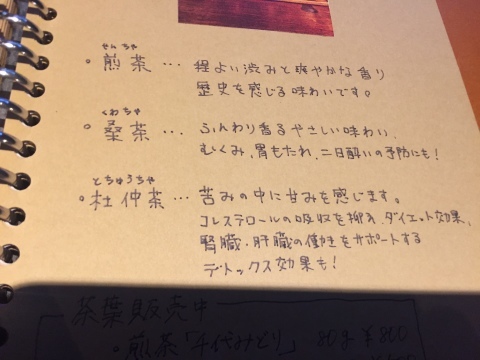 せんちゃ
。煎茶 … 程よい渋みと爽やかな香り
歴史を感じる味わいです。
くわちゃ
。桑茶 … ふんわり香るやさしい味わい、
むくみ、胃もたれ、二日酔いの予防にも!
とちゅうちゃ
。杜仲茶 … 苦みの中に甘みを感じます。
コレステロールの吸収を抑え、ダイエット効果、
腎臓・肝臓の働きをサポートする
デトックス効果も!
茶葉販売中
。煎茶「千代みどり」 80g ¥800